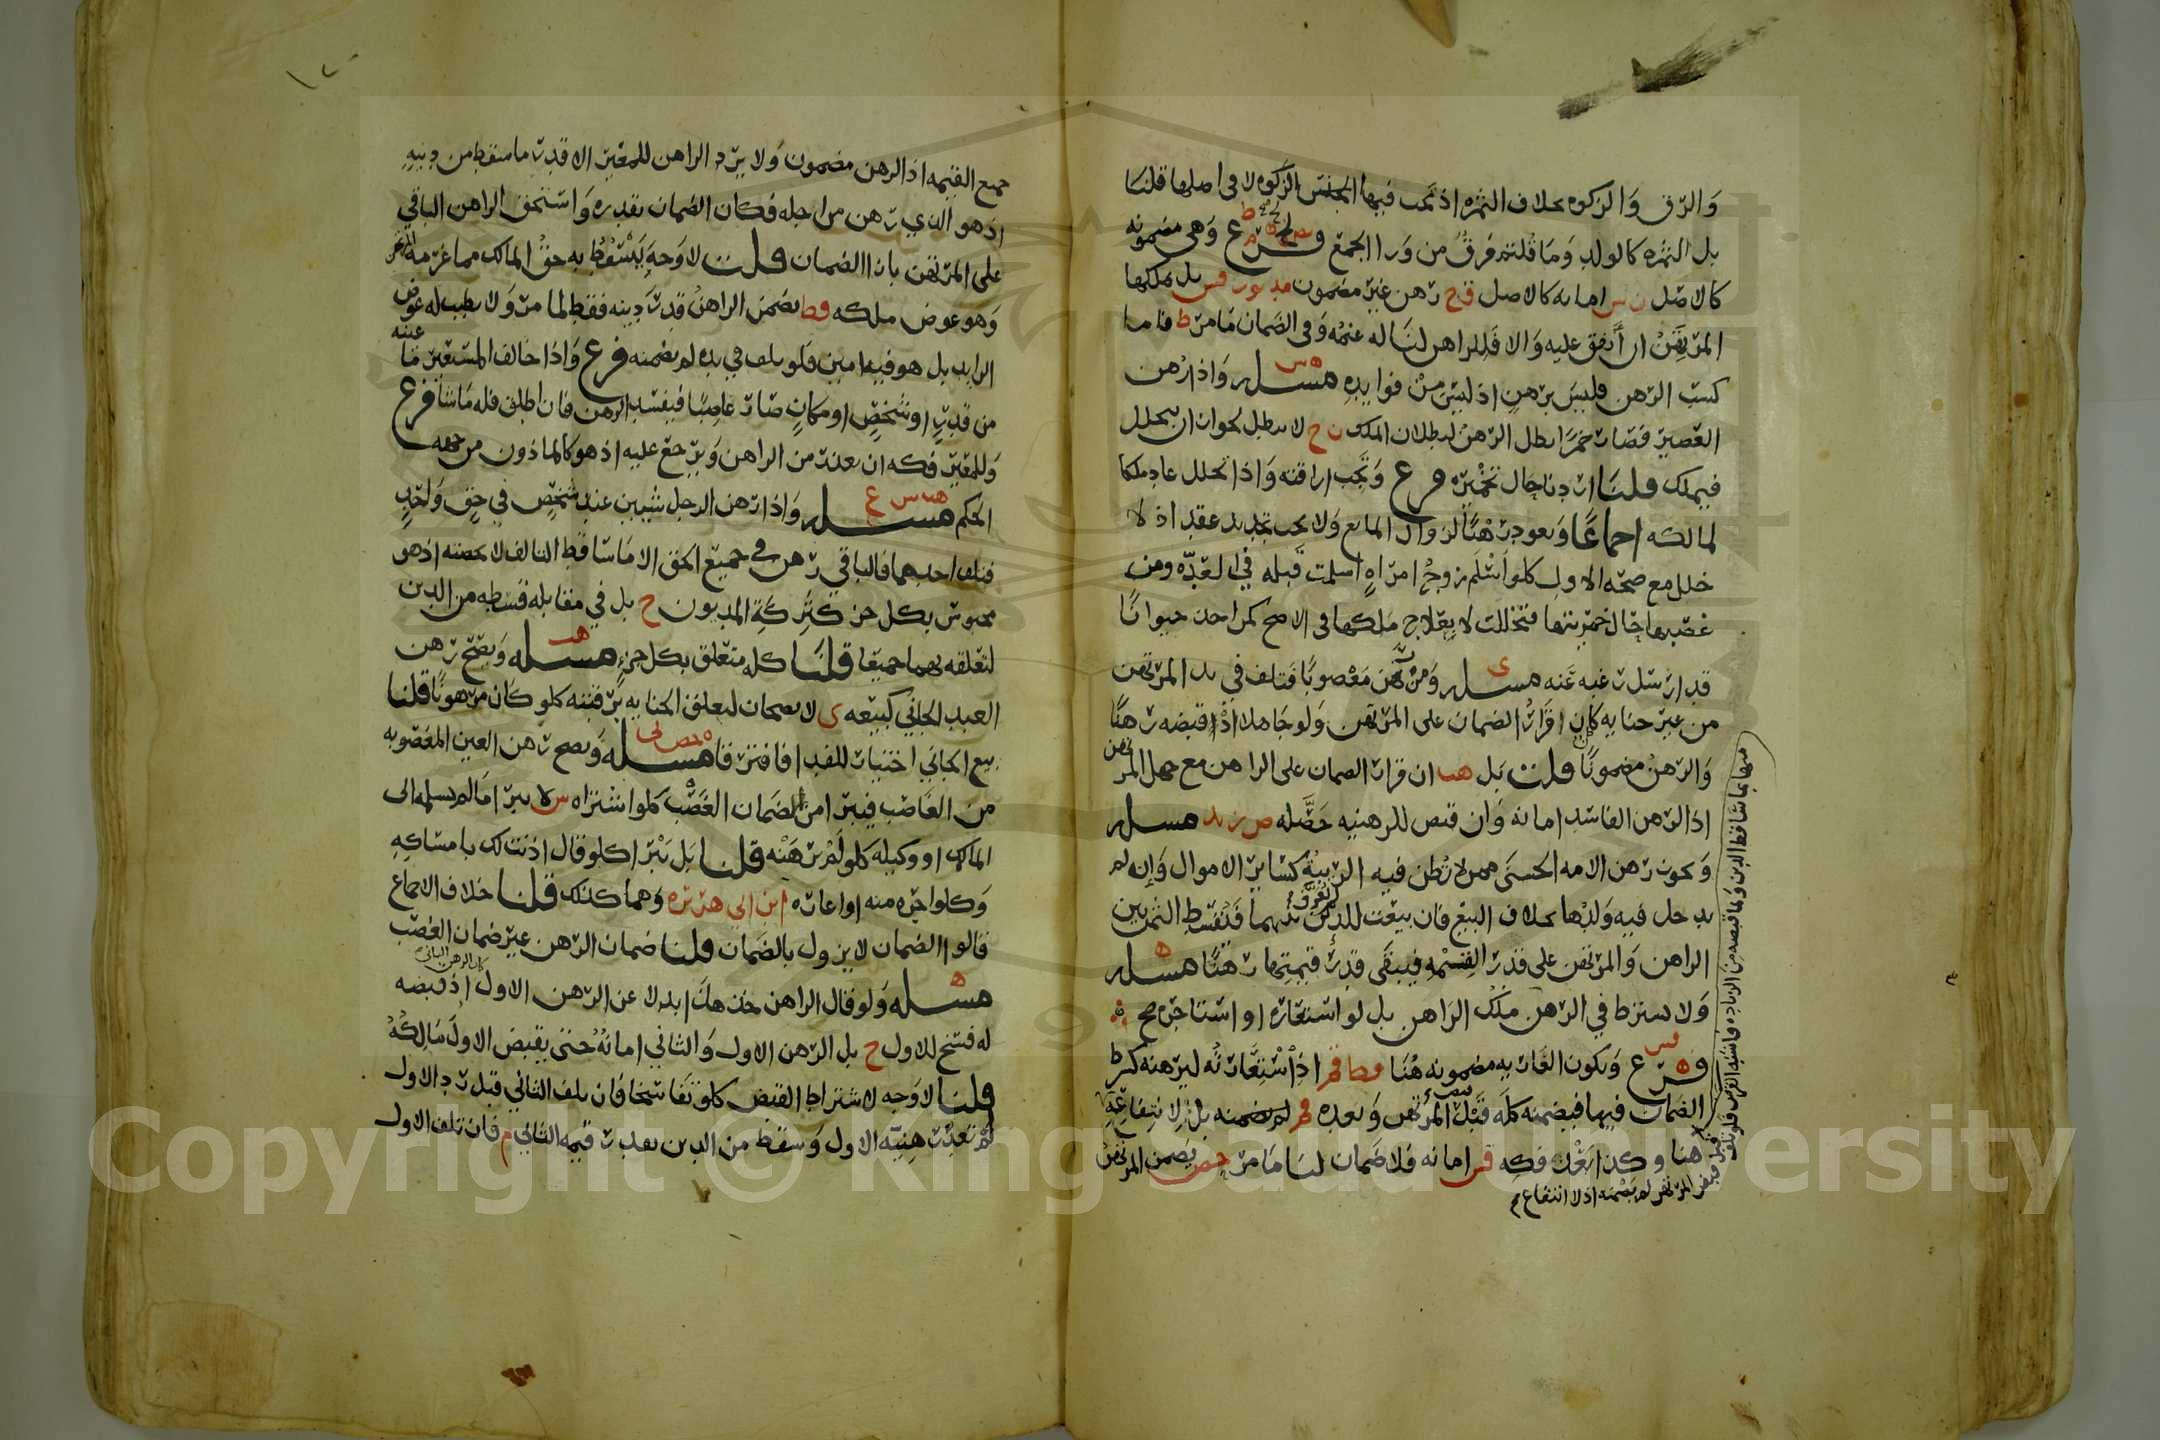 والرق والزكوه بخلاف الثمره اذ تجب فيها الجنس الزكوه لا في اصلها قلنا
بل الثمره كالولد وما قلته فرق من ورا الجمع فرع وهي مضمونه
كالاصل ن س امانه كالاصل قح رهن غير مضمون بل يملكها
المرتهن ان أنفق عليه والا فللراهن لنا له غنمه وفي الضمان ما مر ط فاما
كسب الرهن فليس برهن اذ ليس من فوايده مسله واذا رهن
العصير فصار خمرا بطل الرهن لبطلان الملك ن ح لا يبطل لجواز ان يتخلل
فيملك قلنا اردنا حال تخمره فرع وتجب اراقته واذا تخلل عاد ملكا
لمالكه اجماعا ويعود رهنا لزوال المانع ولا يجب تجديد عقد اذ لا
خلل مع صحه الاول كلو أسلم زوج امراه اسلمت قبله في العده ومن
غصبها حال خمريتها فتخللت لا بعلاج ملكها في الاصح كمن اخذ حيوانا
قد ارسل رغبه عنه مسله ومن رهن مغصوبا فتلف في يد المرتهن
من غير جنايه كان قرار الضمان على المرتهن ولو جاهلا اذ قبضه رهنا
والرهن مضمونا قلت بل هب ان قرار الضمان على الراهن مع جهل المرتهن
اذ الرهن الفاسد امانه وان قبض للرهنيه حصله ص ز يد مسله
ويجوز رهن الامه الحسنى ممن لا تظن فيه الريبه كساير الاموال وإن لم
يدخل فيه ولدها بخلاف البيع فان بيعت للدين بينهما فتقسط الثمنين
الراهن والمرتهن على قدر القسمه فيبقى قدر قيمتها رهنا مسله
ولا يشترط في الرهن ملك الراهن بل لو استعاره او استاجره صح
فرع وتكون العاريه مضمونه هنا قط قم اذ استعارته ليرهنه كشرط
الضمان فيها فيضمنه كله قبل المرتهن وبعده قم لم يضمنه بل لا نتفاعه
هنا وكذا بعد فكه قس امانه فلا ضمان لنا ما مر حص يضمن المرتهن
قبض المرتهن لم يضمنه اذ لا انتفاع م
جميع القيمه اذ الرهن مضمون ولا يرد الراهن للمعير الا قدر ما سقط من دينه
اذ هو الذي رهن من اجله فكان الضمان بقدره واستحق الراهن الباقي
على المرتهن باذا الضمان قلت لا وجه يسقط به حق المالك مما غرمه
وهو عوض ملكه قط يضمن الراهن قدر دينه فقط لما مر ولا يطيب له عوض
الزايد بل هو فيه امين فلو تلف في يده لم يضمنه فرع واذا خالف المستعير ما عينه
من قدر او شخص او مكان صار غاصبا فيفسد الرهن فان اطلق فله ما شا فرع
وللمعير فكه ان تعذر من الراهن ويرجع عليه اذ هو كالماذون من جهه
الحكم مسله واذا رهن الرجل شيين عند شخص في حق واحد
فتلف احدهما فالباقي رهن في جميع الحق الا ما ساقط التالف لا بحصته اذ هو
محبوس بكل جز كتركة المديون ح بل في مقابله قسطه من الدين
لتعلقه بهما جميعا قلنا كله متعلق بكل جزء مسله ويصح رهن
العبد الجاني كبيعه ى لا يصحان لتعلق الجنايه برقبته كلو كان مرهونا قلنا
بيع الجاني اختيار للفدا فافترقا مسله ويصح رهن العين المغصوبه
من الغاصب فيبرا من ضمان الغصب كلو اشتراه س لا يبرا ما لم يسلمه الى
المالك او وكيله كلو لم يرهنه قلنا بل يبرا كلو قال اذنت لك بامساكه
وكلو اجره منه او اعاره ابن ابي هريره وهما كذلك قلنا خلاف الاجماع
قالوا الضمان لا يزول بالضمان قلنا ضمان الرهن غير ضمان الغصب
مسله ولو قال الراهن خذ هذا بدلا عن الرهن الاول كان الرهن الثاني اذ قبضه
له فسخ للاول ح بل الرهن الاول والثاني امانة حتى يقبض الاول مالكه
قلنا لا وجه لاشتراط القبض كلو تفاسخا فان تلف الثاني قبل رد الاول
لم تعد رهنيه الاول وسقط من الدين بقدر قيمه الثاني م فان تلف الاول